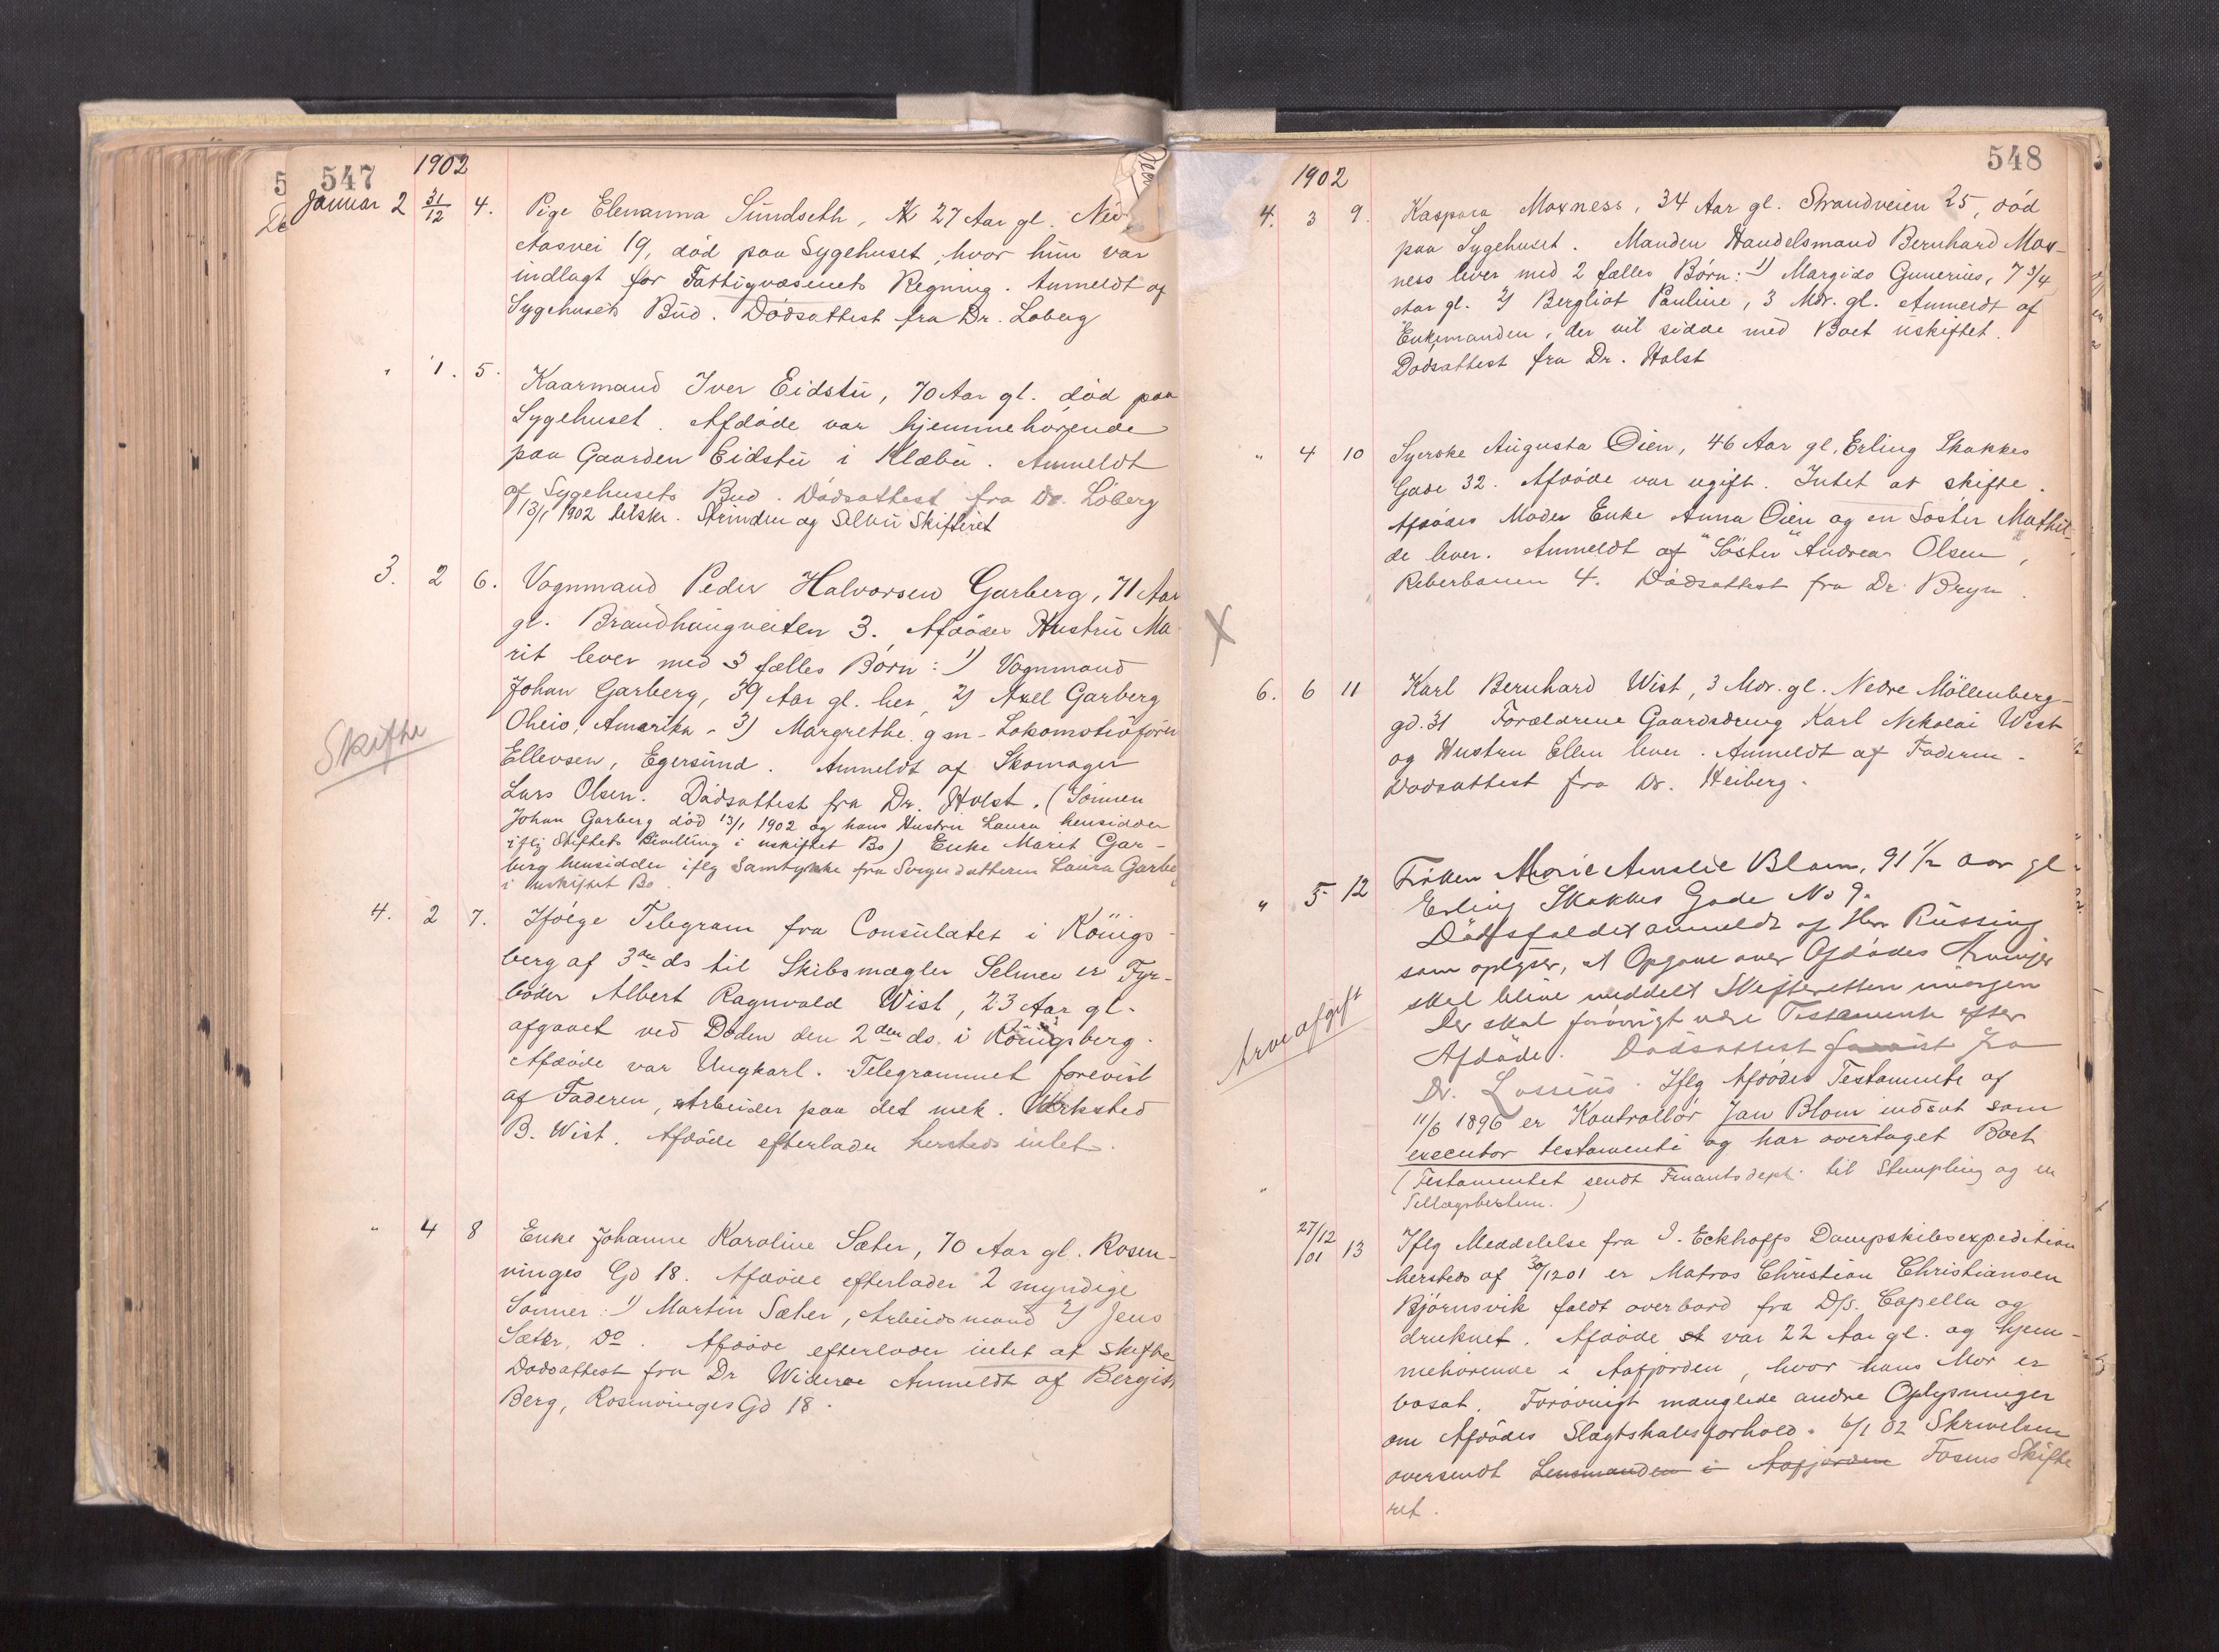 547
1902
Januar 2 31/12 4. Pige Elenanna Sundseth, 27 Aar gl.
Aasvei 19, död paa Sygehuset, hvor hun var
indlagt for Fattigvæsenets Regning. Anmeldt af
Sygehusets Bud. Dödsattest fra Dr. Löberg
" 1. 5. Kaarmand Iver Eidstu, 70 Aar gl. död paa
Sygehuset. Afdöde var hjemmehörende
paa Gaarden Eidstu i Klæbu. Anmeldt
af Sygehusets Bud. Dödsattest fra Dr. Löberg
13/1 1902 tilskr. Strinden og Selbu Skifteret
3. 2 6. Vognmand Peder Halvorsen Garberg, 71 Aar
gl. Brandhaugveiten 3. Afdödes Hustru Ma-
rit lever med 3 fælles Börn: 1) Vognmand
Johan Garberg, 39 Aar gl. her, 2) Axel Garberg
Oheio, Amerika - 3) Margrethe g m - Lokomotivförer
Skifte
Ellevsen, Egersund. Anmeldt af Skomager
Lars Olsen. Dödsattest fra Dr. Holst. (Sönnen
Johan Garberg död 13/1 1902 og hans Hustru Laura hensidder
iflg Skiftets Bevilling i uskiftet Bo) Enke Marit Gar-
berg hensidder iflg Samtykke fra Svigerdatteren Laura Garberg
i uskiftet Bo.
4. 2 7. Ifölge Telegram fra Consulatet i Königs-
berg af 3die ds til Skibsmægler Selmer er Fyr-
böder Albert Ragnvald Wist, 23 Aar gl.
afgaaet ved Döden den 2den ds. i Königsberg.
Afdöde var Ungkarl. Telegrammet forevist
af Faderen, Arbeider paa det mek. Værksted
B. Wist. Afdöde efterlader hersteds intet.
" 4 8 Enke Johanne Karoline Sæter, 70 Aar gl. Rosen-
vinges Gd 18. Afdöde efterlader 2 myndige
Sönner: 1) Martin Sæter, Arbeidsmand 2) Jens
Sæter, Do. Afdöde efterlader intet at skifte
Dödsattest fra Dr Wideröe Anmeldt af Bergit
Berg, Rosenvinges Gd 18.
548
1902
4. 3 9. Kaspara Moxness, 34 Aar gl. Strandveien 25, död
paa Sygehuset. Manden Handelsmand Bernhard Mox-
ness lever med 2 fælles Börn: 1) Margido Gunerius, 7 3/4
Aar gl. 2) Bergliot Pauline, 3 Mdr. gl. Anmeldt af
Enkemanden, der vil sidde med Boet uskiftet.
Dödsattest fra Dr. Holst
" 4 10 Syerske Augusta Öien, 46 Aar gl, Erling Skakkes
Gade 32. Afdöde var ugift. Intet at skifte.
Afdödes Moder Enke Anna Öien og en Söster Mathil-
de lever. Anmeldt af "Söster" Andrea Olsen,
Reberbanen 4. Dödsattest fra Dr. Bryn.
X
6. 6 11 Karl Bernhard Wist, 3 Mdr. gl. Nedre Möllenberg-
gd. 31 Forældrene Gaardsdreng Karl Nikolai Wist
og Hustru Ellen lever. Anmeldt af Faderen.
Dödsattest fra Dr. Heiberg.
" 5 12 Fröken Marie Amalie Blom, 91 1/2 Aar gl
Erling Skakkes Gade No 9.
Dödsfaldet anmeldt af Herr Küssing
som oplyser, at Opgave over Afdödes Arvinger
skal blive meddelt Skifteretten imorgen
Der skal forövrigt være Testamente efter
Arveafgift
Afdöde. Dödsattest forevist fra
Dr. Lossius. Iflg Afdödes Testamente af
11/6 1896 er Kontrollör Jan Blom indsat som
executor testamenti og har overtaget Boet
(Testamentet sendt Finantsdept. til Stempling og en
" Tillægsbestem.)
27/12/01 13 Iflg Meddelelse fra I. Eckhoffs Dampskibsexpedition
hersteds af 30/12 01 er Matros Christian Christiansen
Björnsvik faldt overbord fra D/S. Capella og
druknet. Afdöde st var 22 Aar gl. og hjem-
mehörende i Aafjorden, hvor hans Mor er
bosat. Forövrigt manglede andre Oplysninger
om Afdödes Slægtskabsforhold. 6/1 02 Skrivelsen
oversendt Lensmanden i Aafjorden Fosens Skifte
ret.